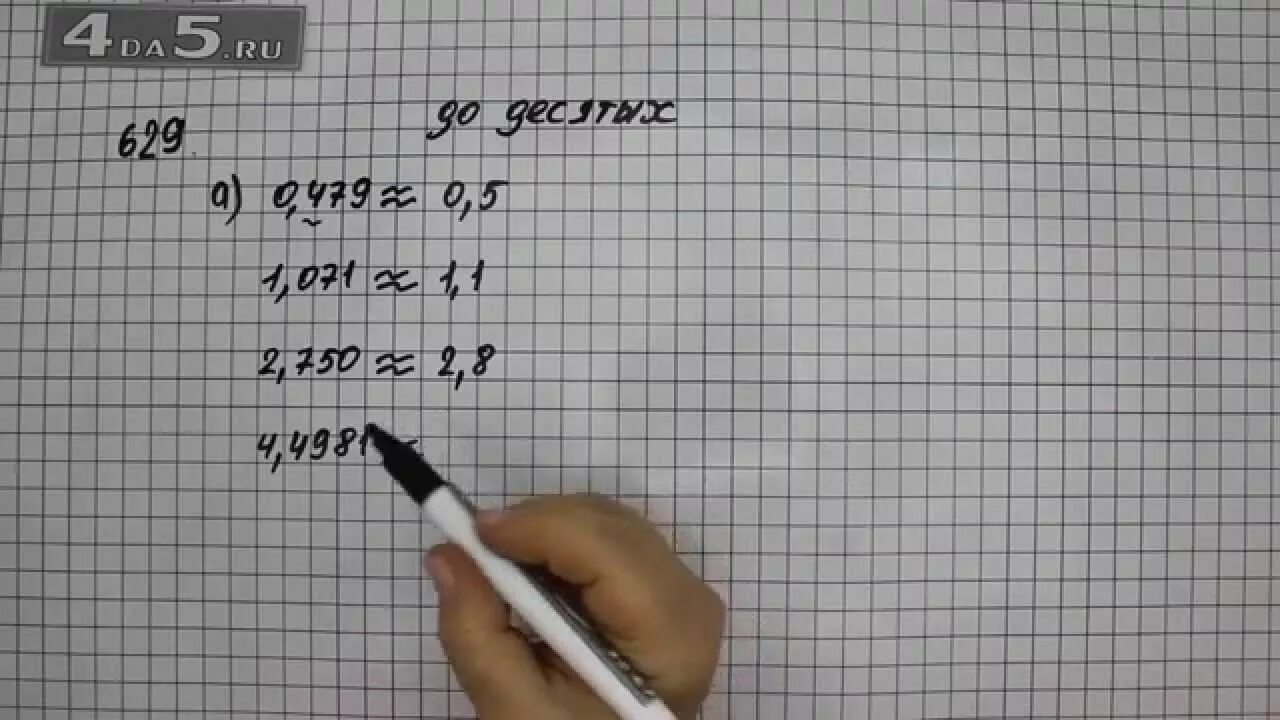 4DA5.RU
до десятых
629.
а) 0,479 ≈ 0,5
1,071 ≈ 1,1
2,750 ≈ 2,8
4,4981 ≈